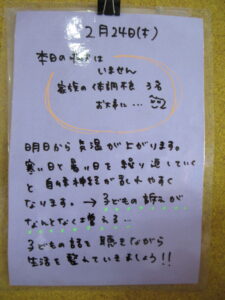 2月24日(木)
本日の
いません
家族の体調不良 3名
お大事に…
明日から気温が上がります。
寒い日と暑い日を繰り返していく
と自律神経が乱れやすく
なります。→子どもの訴えが
なんとなく増える…
子どもの話を聴きながら
生活を整えていきましょう!!